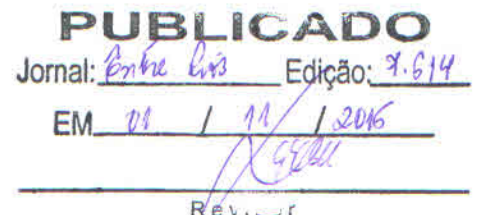 PUBLICADO
Jornal: Entre Rios Edição: 7.614
EM 01 / 11 / 2016